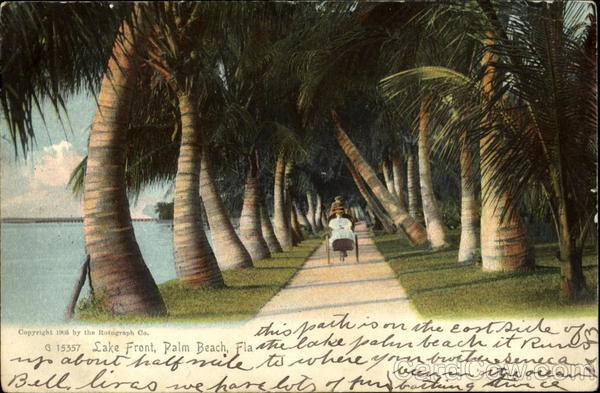 Copyright 1905 by the Rotograph Co.
G 15357 Lake Front, Palm Beach, Fla
this path is on the East side of
the lake palm beach it Runs
up about half mile to where your brother seneca
Bell, livas we have lots of fun
CardCow.com